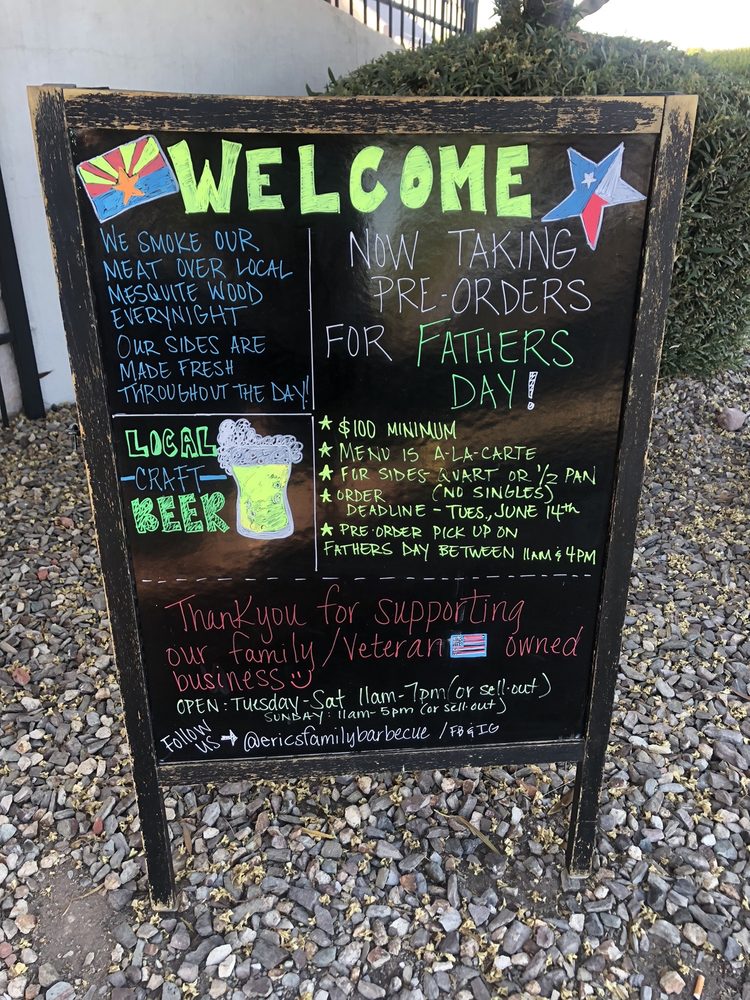 WELCOME
WE SMOKE OUR
MEAT OVER LOCAL
MESQUITE WOOD
EVERYNIGHT
OUR SIDES ARE
MADE FRESH
THROUGHOUT THE DAY!
NOW TAKING
PRE-ORDERS
FOR FATHERS
DAY!
LOCAL
-CRAFT-
BEER
★ $100 MINIMUM
★ MENU IS A-LA-CARTE
★ FOR SIDES-QUART OR 1/2 PAN
(NO SINGLES)
★ ORDER
DEADLINE - TUES, JUNE 14th
★ PRE-ORDER PICK UP ON
FATHERS DAY BETWEEN 11AM & 4PM
Thankyou for supporting
our family/Veteran owned
business
OPEN: Tuesday-Sat 11am-7pm (or sell-out)
SUNDAY: 11am-5pm (or sell-out)
Follow
us → @ericsfamilybarbecue / FB & IG